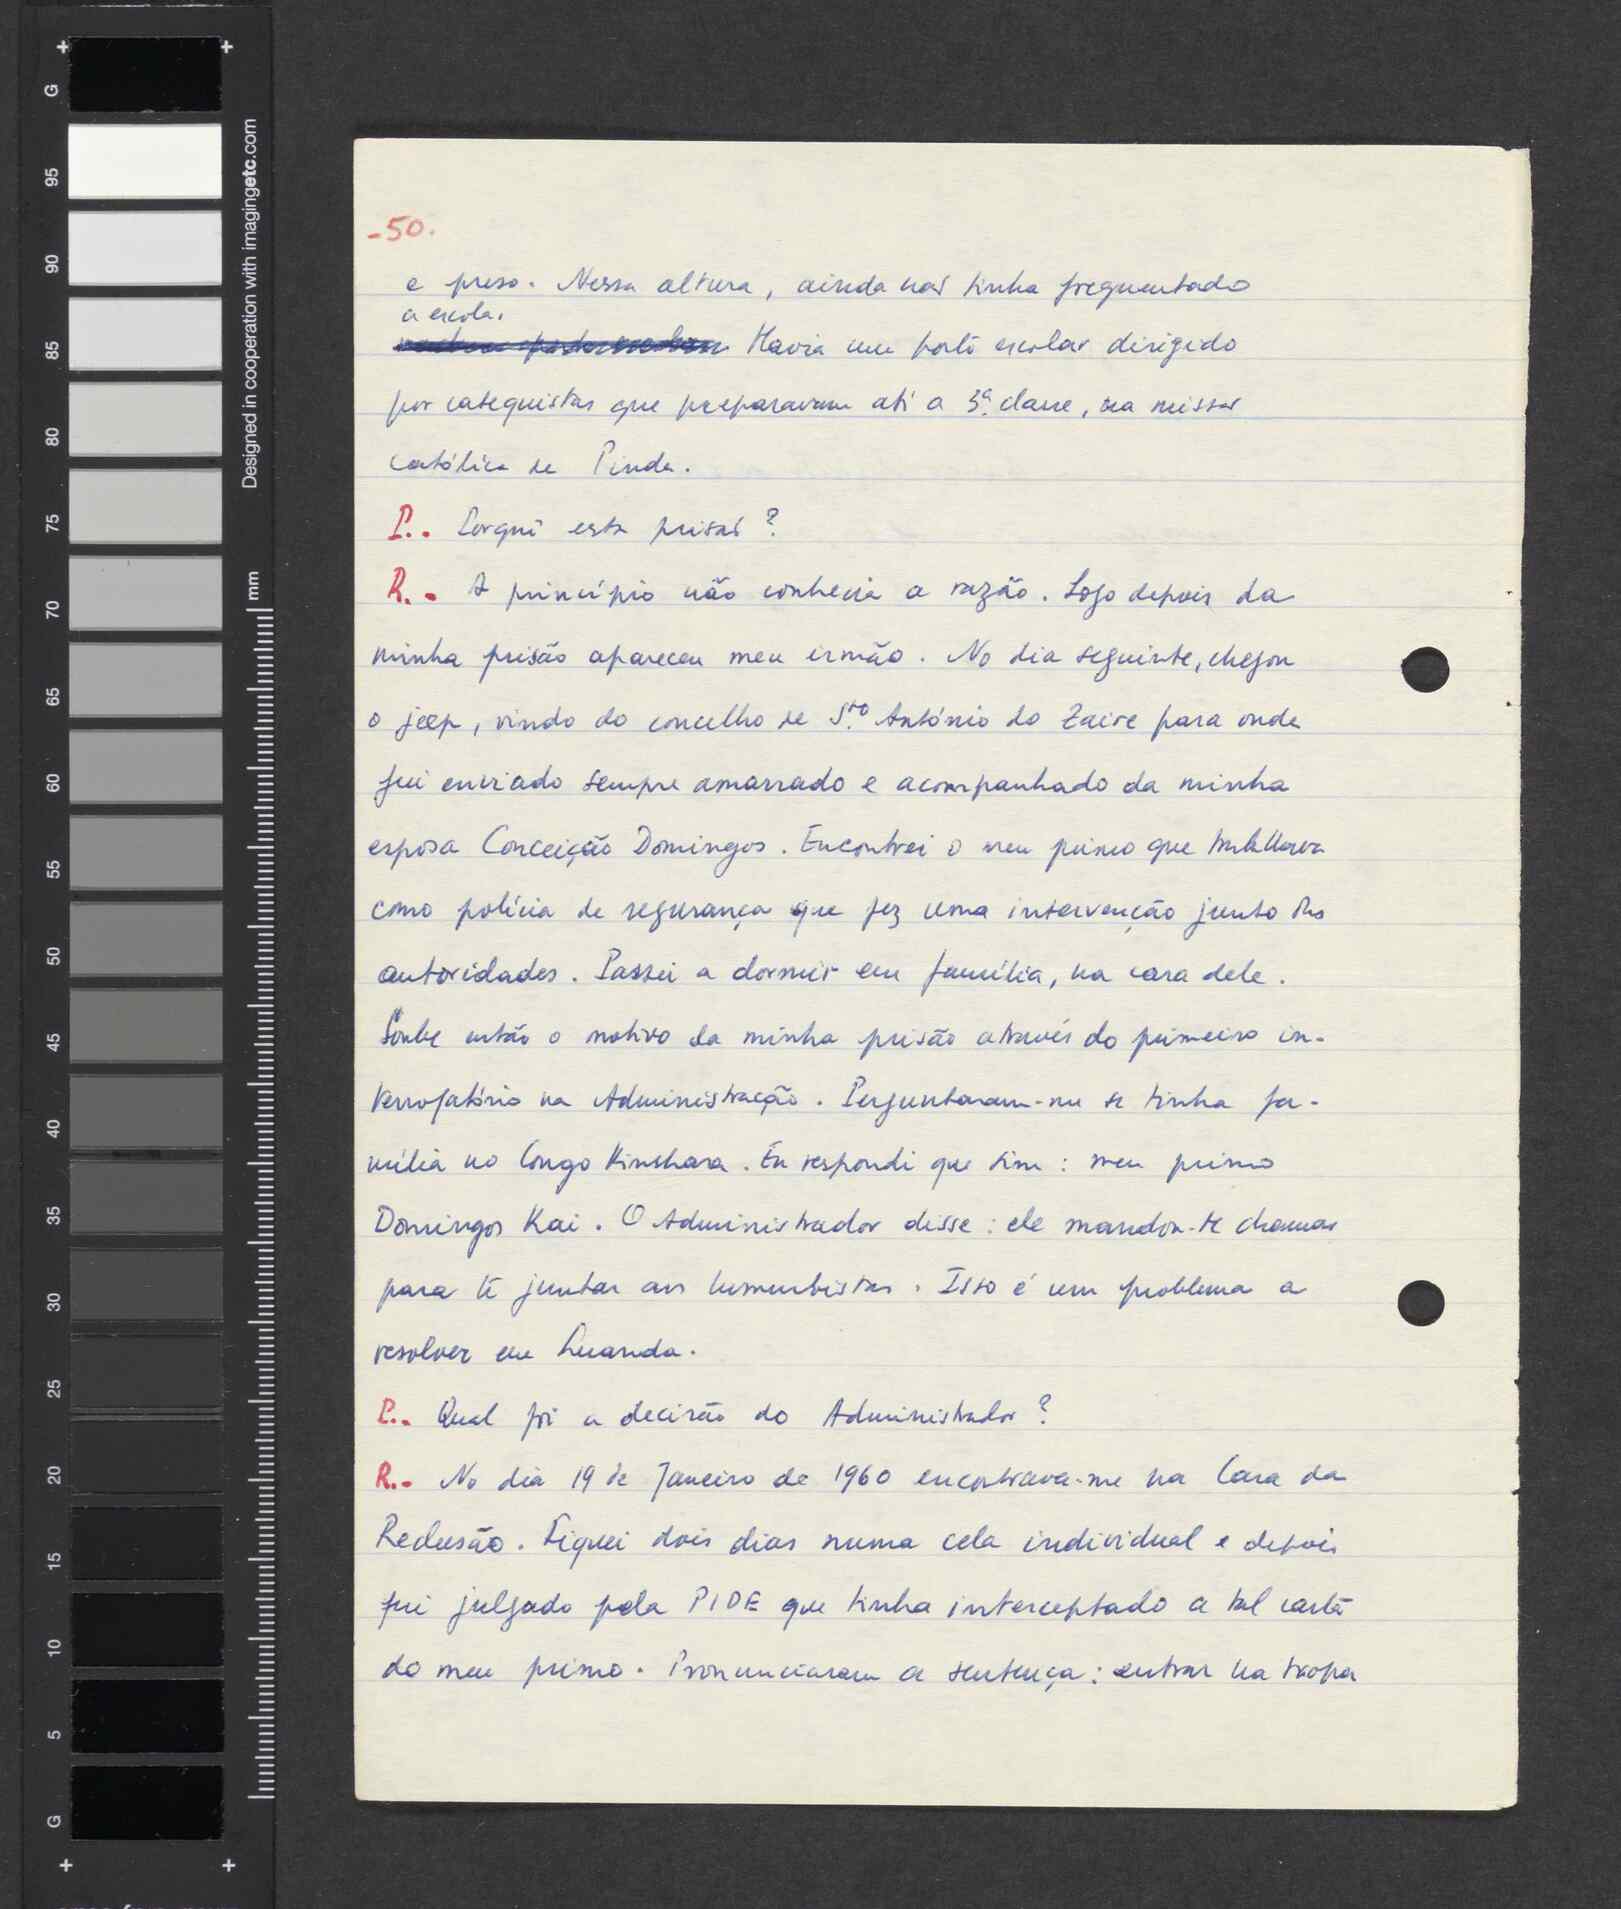 -50.
e preso. Nessa altura, ainda não tinha frequentado
a escola.
Havia um posto escolar dirigido
por catequistas que preparavam até a 3ª classe, na missão
católica de Pinda.
P.. Porquê esta prisão?
R.- A princípio não conhecia a razão. Logo depois da
minha prisão apareceu meu irmão. No dia seguinte, chegou
o jeep, vindo do concelho de Sto António do Zaire para onde
fui enviado sempre amarrado e acompanhado da minha
esposa Conceição Domingos. Encontrei o meu primo que trabalhava
como polícia de segurança que fez uma intervenção junto das
autoridades. Passei a dormir em família, na casa dele.
Soube então o motivo da minha prisão através do primeiro in-
terrogatório na Administração. Perguntaram-me se tinha fa-
mília no Congo Kinshasa. Eu respondi que sim: meu primo
Domingos Kai. O Administrador disse: ele mandou-te chamar
para te juntar aos lumumbistas. Isso é um problema a
resolver em Luanda.
P.. Qual foi a decisão do Administrador?
R.- No dia 19 de Janeiro de 1960 encontrava-me na Casa da
Reclusão. Fiquei dois dias numa cela individual e depois
fui julgado pela PIDE que tinha interceptado a tal carta
do meu primo. Pronunciaram a sentença: entrar na tropa
G
95
90
85
80
75
70
65
60
55
50
45
40
35
30
25
20
15
10
5
G
Designed in cooperation with imagingetc.com
mm